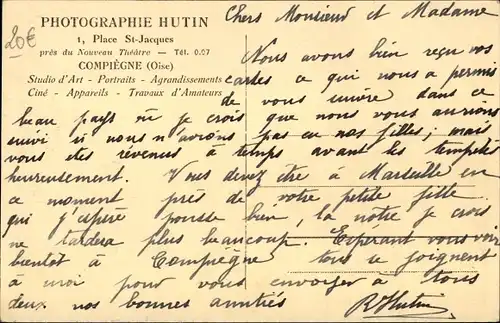 20€
PHOTOGRAPHIE HUTIN
1, Place St-Jacques
près du Nouveau Théâtre — Tél. 0.07
COMPIÈGNE (Oise)
Studio d'Art - Portraits - Agrandissements
Ciné - Appareils - Travaux d'Amateurs
Chers Monsieur et Madame
Nous avons bien reçu vos
cartes ce qui nous a permis
de vous suivre dans ce
beau pays où je crois que nous vous aurions
suivi si nous n'avions pas eu nos filles; mais
vous etes revenus à temps avant les tempêtes
heureusement. Vous devez être à Marseille en
ce moment près de votre petite fille
qui j'espère pousse bien, la nôtre je crois
ne tardera plus beaucoup. Espérant vous voir
bientôt à Compiègne tous se joignent
à moi pour vous envoyer à tous
deux nos bonnes amitiés
R Hutin